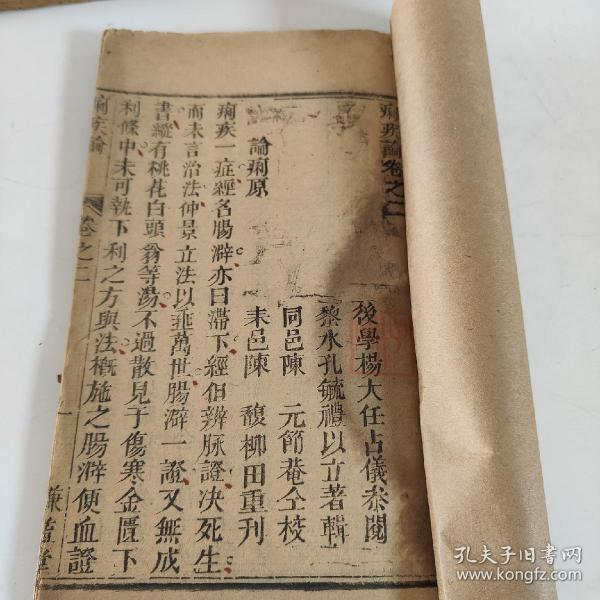 痢疾論卷之二
後學楊大任占儀叅閱
黎水孔毓禮以立著輯
同邑陳 元節菴仝校
耒邑陳 馥柳田重刊
論痢原
痢疾一症經名腸澼亦曰滯下經但辨脉證决死生
而未言治法仲景立法以垂萬世腸澼一證又無成
書縱有桃花白頭翁等湯不過散見于傷寒金匱下
利條中未可執下利之方與法概施之腸澼便血證
痢疾論 卷之二 一 謙書堂
孔夫子旧書网
www.kongfz.com